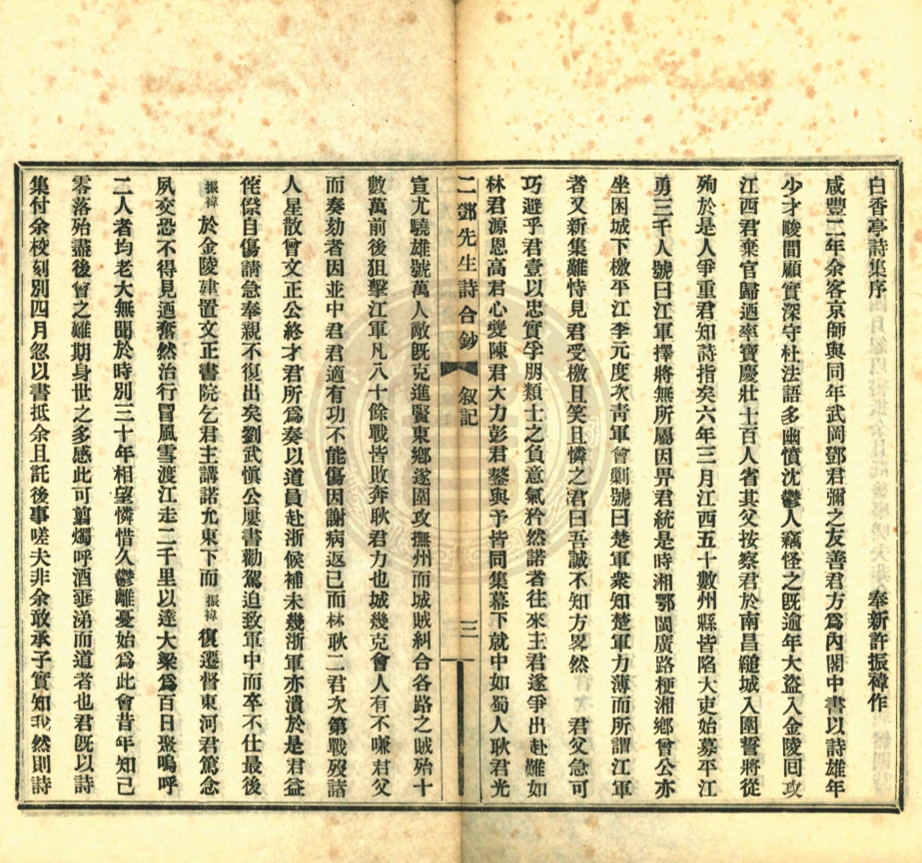 白香亭詩集序
奉新許振褘作
咸豐二年余客京師與同年武岡鄧君彌之友善君方爲內閣中書以詩雄年
少才畯間顧實深守杜法語多幽憤沈鬱人竊怪之旣逾年大盜入金陵囘攻
江西君棄官歸迺率寶慶壯士百人省其父按察君於南昌縋城入圍誓將從
殉於是人爭重君知詩指矣六年三月江西五十數州縣皆陷大吏始募平江
勇三千人號曰江軍擇將無所屬因畀君統是時湘鄂閩廣路梗湘鄉曾公亦
坐困城下檄平江李元度次靑軍會剿號曰楚軍衆知楚軍力薄而所謂江軍
者又新集難恃見君受檄且笑且憐之君曰吾誠不知方畧然 君父急可
巧避乎君壹以忠實孚朋類士之負意氣矜然諾者往來主君遂爭出赴難如
林君源恩高君心夔陳君大力彭君鏊與予皆同集幕下就中如蜀人耿君光
二鄧先生詩合鈔 叙記 三
宣尤驍雄號萬人敵旣克進賢東鄉遂圍攻撫州而城賊糾合各路之賊殆十
數萬前後狙擊江軍凡八十餘戰皆敗奔耿君力也城幾克會人有不嗛君父
而奏劾者因並中君君適有功不能傷因謝病返已而林耿二君次第戰歿諸
人星散曾文正公終才君所爲奏以道員赴浙候補未幾浙軍亦潰於是君益
侘傺自傷請急奉親不復出矣劉武愼公屢書勸駕迫致軍中而卒不仕最後
振褘於金陵建置文正書院乞君主講諾允東下而振褘復遷督東河君篤念
夙交恐不得見迺奮然治行冒風雪渡江走二千里以達大梁爲百日聚嗚呼
二人者均老大無聞於時別三十年相望憐惜久鬱離憂始爲此會昔年知己
零落殆盡後會之難期身世之多感此可翦燭呼酒垂涕而道者也君旣以詩
集付余校刻別四月忽以書抵余且託後事嗟夫非余敢承子實知我然則詩